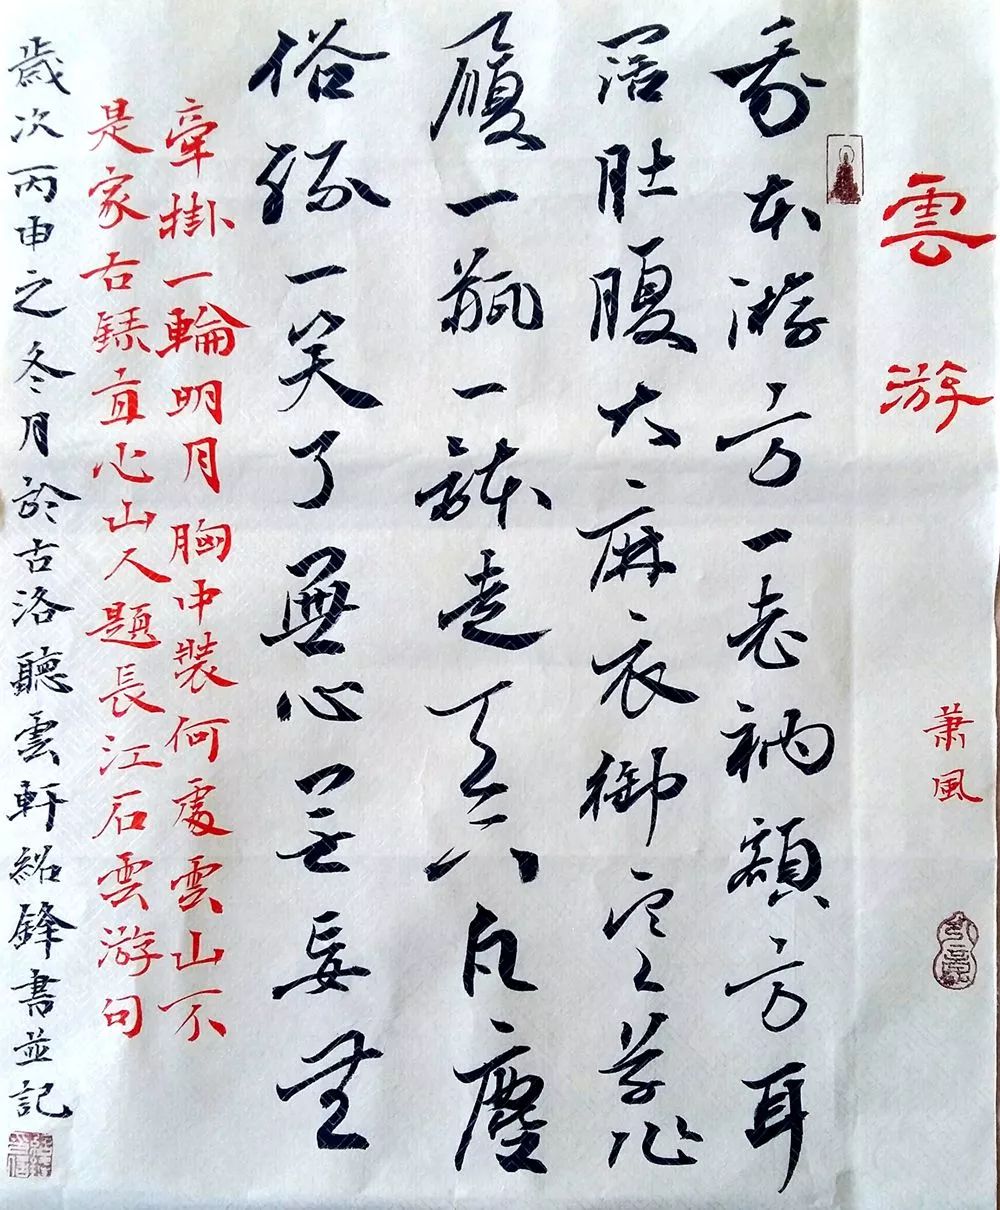 雲游
蕭風
我本游方一老衲額方耳
闊肚腹大麻衣御寒草作
履一瓶一缽走天下凡塵
俗緣一笑了無心無妄無
牽掛一輪明月胸中裝何處雲山不
是家右錄直心山人題長江石雲游句
歲次丙申之冬月於古洛聽雲軒紹鋒書並記